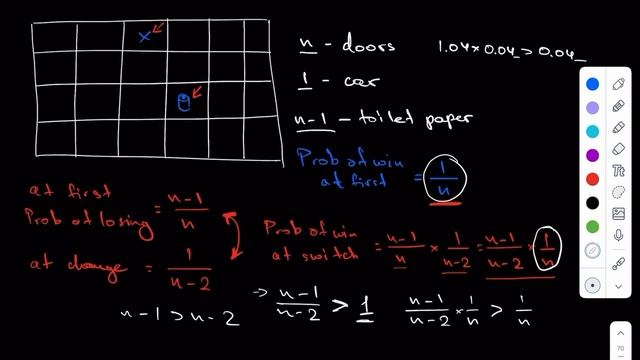 x
n - doors
1.04 × 0.04 > 0.04
1 - car
n-1 - toilet paper
Prob of win at first = 1/n
at first Prob of losing = n-1/n
at change = 1/n-2
Prob of win at switch = n-1/n × 1/n-2 = n-1/n-2 × 1/n
n-1 > n-2
-> n-1/n-2 > 1
n-1/n-2 × 1/n > 1/n
Tt
70